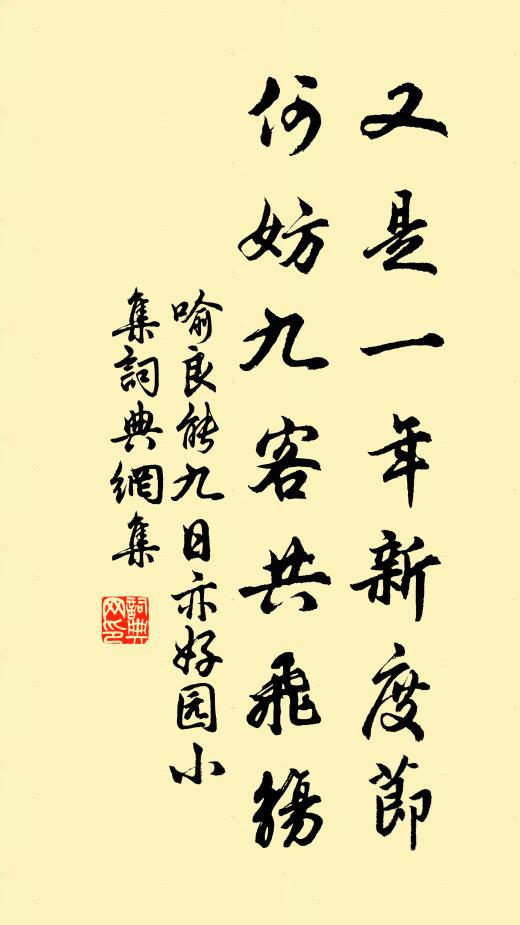 又是一年新度節
何妨九客共飛觴
喻良能九日亦好园小
集詞典網集
詞典
网印